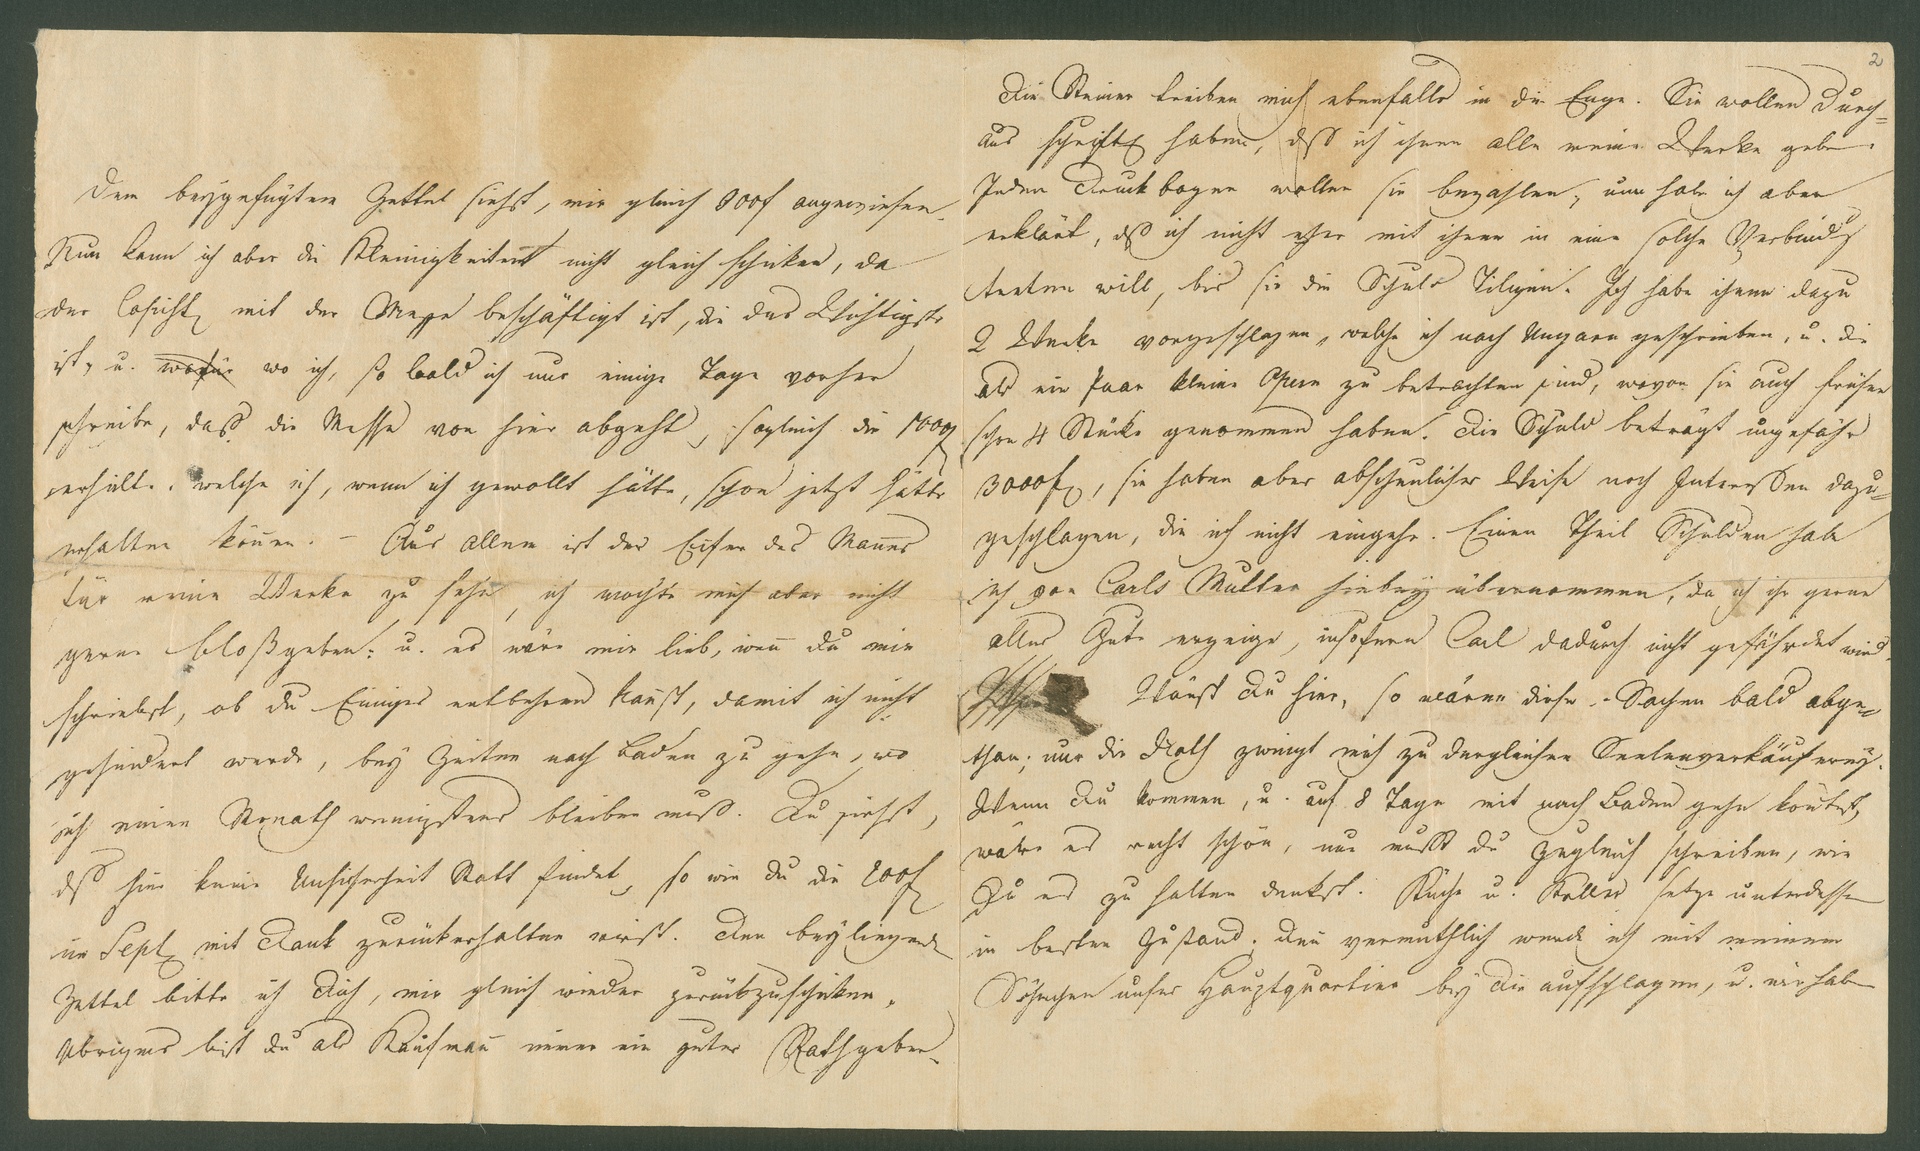 Dem beygefügten Zettel siehst, mir gleich 300f angewiesen.
Nun kann ich aber die Kleinigkeiten nicht gleich schicken, da
der Copicht mit der Messe beschäftigt ist, die das Wichtigste
ist, u. wofür wo ich, so bald ich nur einige Tage vorher
schreibe, daß die Messe von hier abgeht, sogleich die 1000f
erhalte. welche ich, wenn ich gewollt hätte, schon jetzt hätte
erhalten können. – Aus allem ist der Eifer des Mannes
für meine Werke zu sehn, ich möchte mich aber nicht
gerne bloßgeben: u. es wäre mir lieb, wenn du mir
schriebst, ob du Einiges entbehren kannst, damit ich nicht
gehindert werde, bey Zeiten nach Baden zu gehn, wo
ich einen Monath wenigstens bleiben muß. Du siehst,
dß hier keine Unsicherheit Statt findet, so wie du die 200f
im Sept mit Dank zurückerhalten wirst. Den beyliegenden
Zettel bitte ich dich, mir gleich wieder zurückzuschicken.
Übrigens bist du als Kaufmann immer ein guter Rathgeber.
2
Die Steiner treiben mich ebenfalls in die Enge. Sie wollen durch=
aus schriftl haben, dß ich ihnen alle meine Werke gebe.
Jeden Druckbogen wollen sie bezahlen, nun habe ich aber
erklärt, dß ich nicht eher mit ihnen in eine solche Verbindg
treten will, bis sie die Schuld tilgen. Ich habe ihnen dazu
2 Werke vorgeschlagen, welche ich nach Ungarn geschrieben, u. die
als ein Paar kleine Opern zu betrachten sind, wovon sie auch früher
schon 4 Stücke genommen haben. Die Schuld beträgt ungefähr
3000f, sie haben aber abscheulicher Weise noch Interessen dazu=
geschlagen, die ich nicht eingehe. Einen Theil Schulden habe
ich von Carls Mutter hiebey übernommen, da ich ihr gerne
alles Gute erzeige, insofern Carl dadurch nicht gefährdet wird.
Wärst du hier, so wären diese Sachen bald abge=
than; nur die Noth zwingt mich zu dergleichen Seelenverkäuferey.
Wenn du kommen, u. auf 8 Tage mit nach Baden gehn könntest,
wäre es recht schön, nur mußt du zugleich schreiben, wie
Du es zu halten denkst. Küche u. Keller setze unterdessen
in besten Zustand, denn vermuthlich werde ich mit meinem
Söhnchen unser Hauptquartier bey dir aufschlagen, u. wir haben